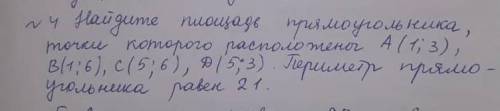 №4 Найдите площадь прямоугольника,
точки которого расположены A(1;3),
B(1;6), C(5;6), D(5;3). Периметр прямо-
угольника равен 21.